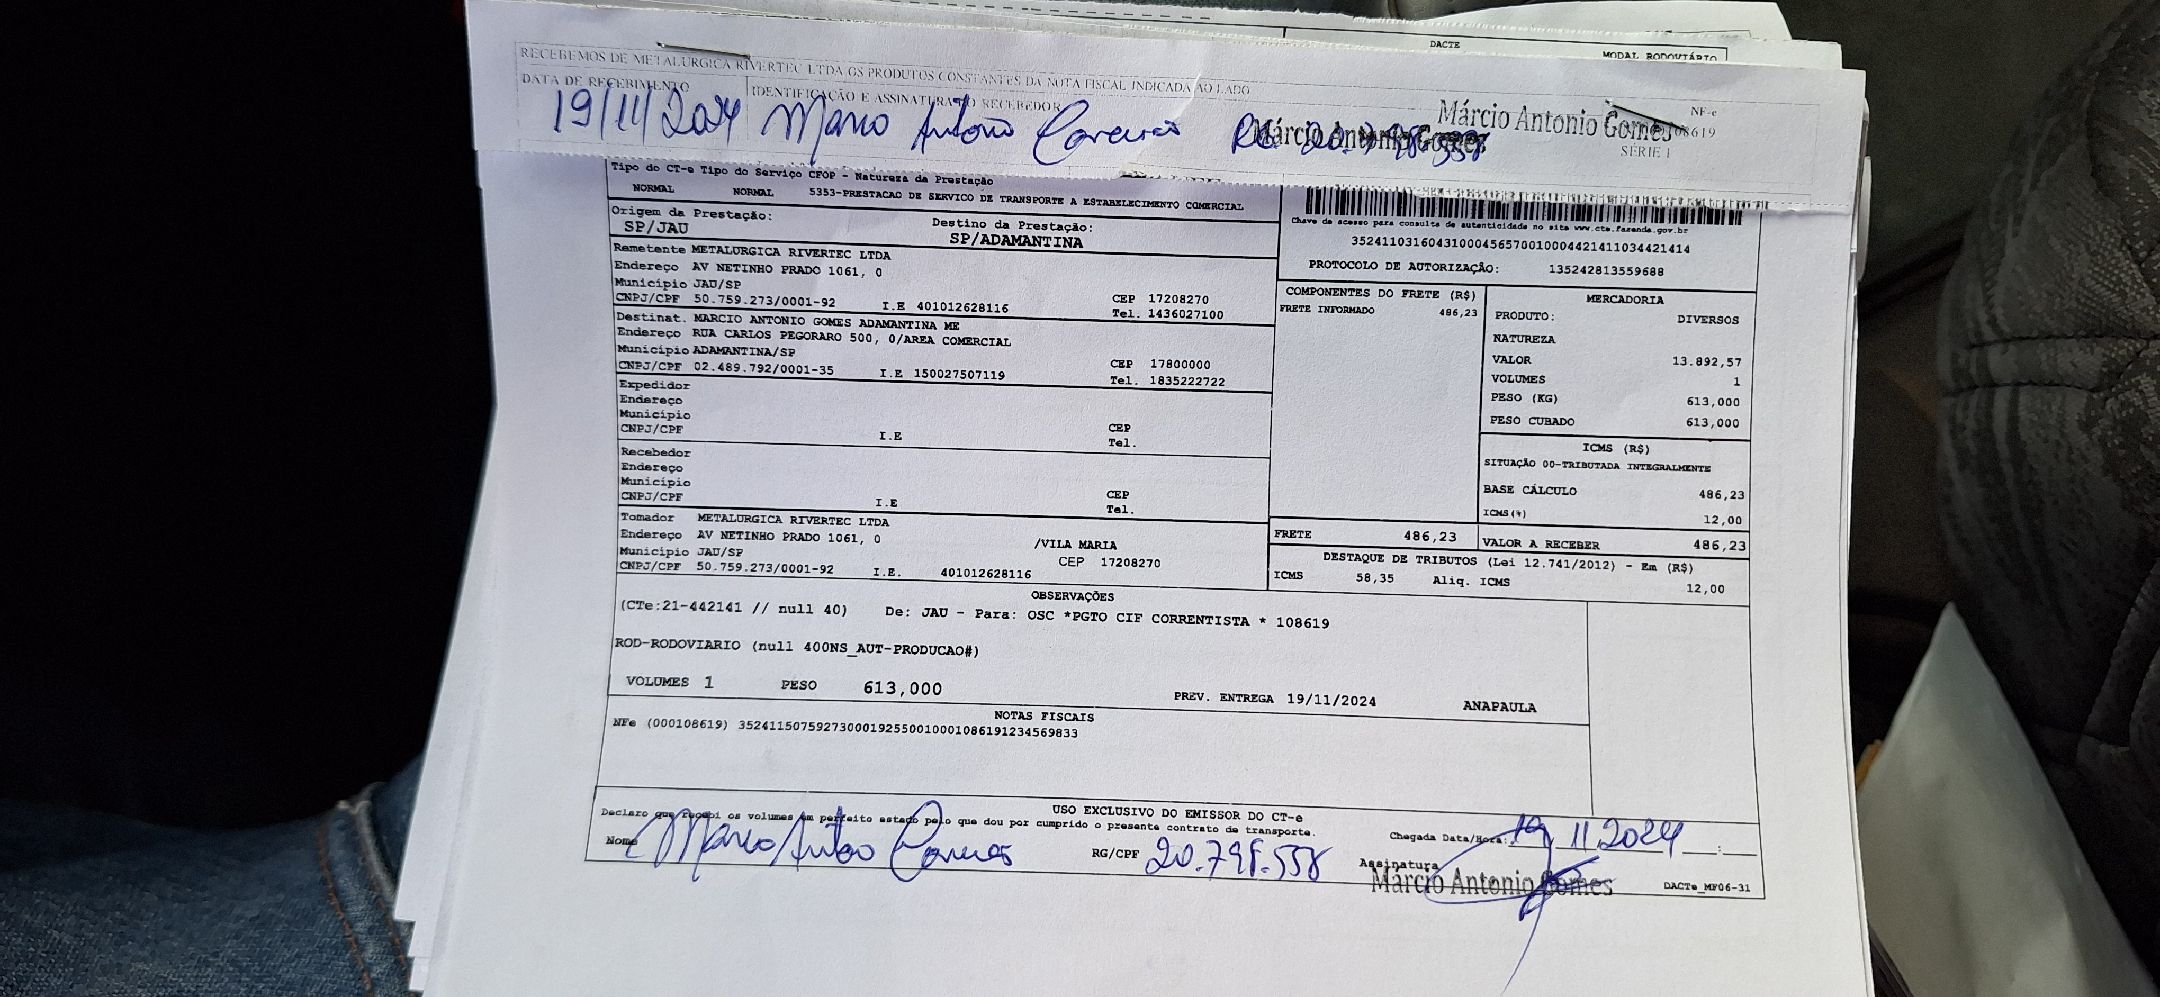 DACTE
MODAL RODOVIÁRIO
RECEBEMOS DE METALURGICA RIVERTEC LTDA OS PRODUTOS CONSTANTES DA NOTA FISCAL INDICADA AO LADO
DATA DE RECEBIMENTO IDENTIFICAÇÃO E ASSINATURA DO RECEBEDOR
NF-e
19/11/2024 Antonio
Márcio Antonio Gomes
Márcio Antonio Gomes
SÉRIE 1
Tipo do CT-e Tipo do Serviço CFOP - Natureza da Prestação
NORMAL NORMAL 5353-PRESTACAO DE SERVICO DE TRANSPORTE A ESTABELECIMENTO COMERCIAL
Origem da Prestação: Destino da Prestação:
SP/JAU SP/ADAMANTINA
Chave de acesso para consulta de autenticidade no site www.cte.fazenda.gov.br
35241103160431000456570010004421411034421414
PROTOCOLO DE AUTORIZAÇÃO: 135242813559688
Remetente METALURGICA RIVERTEC LTDA
Endereço AV NETINHO PRADO 1061, 0
Município JAU/SP CEP 17208270
CNPJ/CPF 50.759.273/0001-92 I.E 401012628116 Tel. 1436027100
Destinat. MARCIO ANTONIO GOMES ADAMANTINA ME
Endereço RUA CARLOS PEGORARO 500, 0/AREA COMERCIAL
Município ADAMANTINA/SP CEP 17800000
CNPJ/CPF 02.489.792/0001-35 I.E 150027507119 Tel. 1835222722
Expedidor
Endereço
Município CEP
CNPJ/CPF I.E Tel.
Recebedor
Endereço
Município CEP
CNPJ/CPF I.E Tel.
Tomador METALURGICA RIVERTEC LTDA
Endereço AV NETINHO PRADO 1061, 0 /VILA MARIA
Município JAU/SP CEP 17208270
CNPJ/CPF 50.759.273/0001-92 I.E. 401012628116
COMPONENTES DO FRETE (R$)
FRETE INFORMADO 486,23
MERCADORIA
PRODUTO: DIVERSOS
NATUREZA
VALOR 13.892,57
VOLUMES 1
PESO (KG) 613,000
PESO CUBADO 613,000
ICMS (R$)
SITUAÇÃO 00-TRIBUTADA INTEGRALMENTE
BASE CÁLCULO 486,23
ICMS(%) 12,00
FRETE 486,23 VALOR A RECEBER 486,23
DESTAQUE DE TRIBUTOS (Lei 12.741/2012) - Em (R$)
ICMS 58,35 Aliq. ICMS 12,00
OBSERVAÇÕES
(CTe:21-442141 // null 40) De: JAU - Para: OSC *PGTO CIF CORRENTISTA * 108619
ROD-RODOVIARIO (null 400NS_AUT-PRODUCAO#)
VOLUMES 1 PESO 613,000 PREV. ENTREGA 19/11/2024 ANAPAULA
NOTAS FISCAIS
NFe (000108619) 35241150759273000192550010001086191234569833
USO EXCLUSIVO DO EMISSOR DO CT-e
Declaro que recebi os volumes em perfeito estado pelo que dou por cumprido o presente contrato de transporte.
Nome RG/CPF 20.798.558
Chegada Data/Hora: 19 11 2024 :
Assinatura
Márcio Antonio Gomes
DACTe_MF06-31